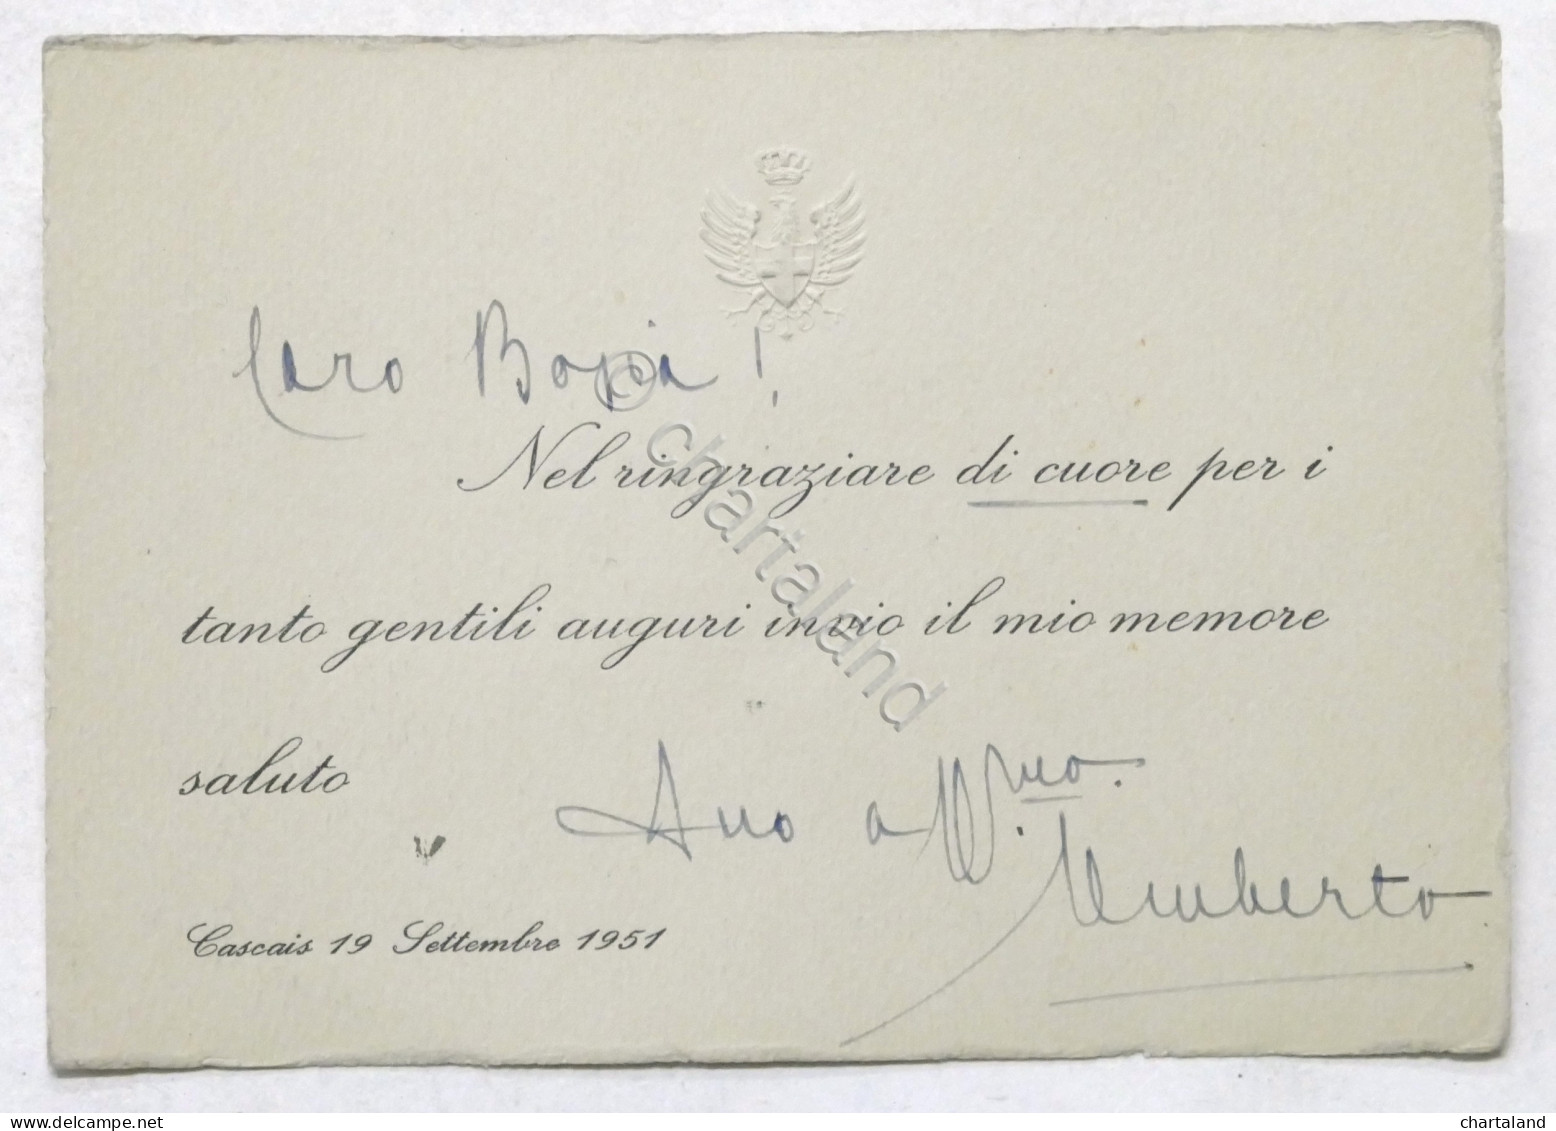 Caro
Nel ringraziare di cuore per i
tanto gentili auguri invio il mio memore
saluto
Suo aff.mo.
Umberto
Cascais 19 Settembre 1951
© chartaland
www.delcampe.net
chartaland